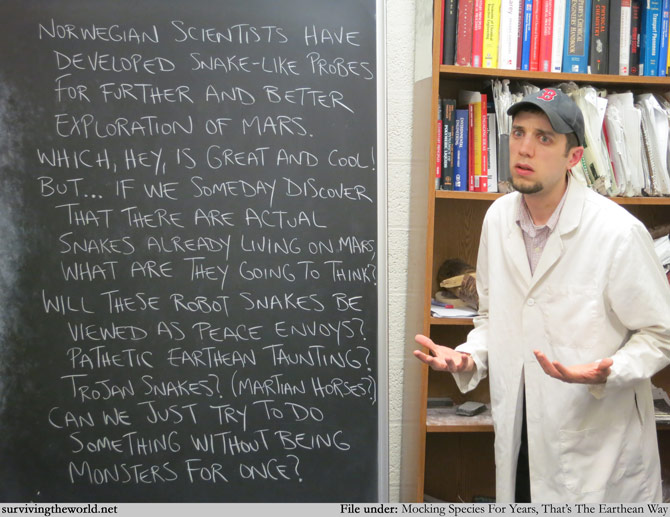 NORWEGIAN SCIENTISTS HAVE
DEVELOPED SNAKE-LIKE PROBES
FOR FURTHER AND BETTER
EXPLORATION OF MARS.
WHICH, HEY, IS GREAT AND COOL!
BUT... IF WE SOMEDAY DISCOVER
THAT THERE ARE ACTUAL
SNAKES ALREADY LIVING ON MARS,
WHAT ARE THEY GOING TO THINK?
WILL THESE ROBOT SNAKES BE
VIEWED AS PEACE ENVOYS?
PATHETIC EARTHEAN TAUNTING?
TROJAN SNAKES? (MARTIAN HORSES?)
CAN WE JUST TRY TO DO
SOMETHING WITHOUT BEING
MONSTERS FOR ONCE?
survivingtheworld.net
File under: Mocking Species For Years, That's The Earthean Way